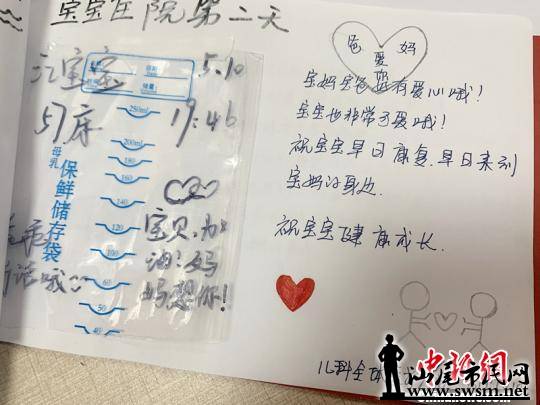 宝宝住院第二天
元宝宝
5.10
57床
19:46
250ml
200ml
180
160
140
120
100
50
40
母乳
保鲜储存袋
宝贝,加
油!妈
妈想你!
乖乖
听话哦
爸爱妈
宝妈宝爸真有爱心哦!
宝宝也非常可爱哦!
祝宝宝早日康复.早日来到
宝妈的身边.
祝宝宝健康成长.
儿科全体
汕尾市民网
www.swsm.net